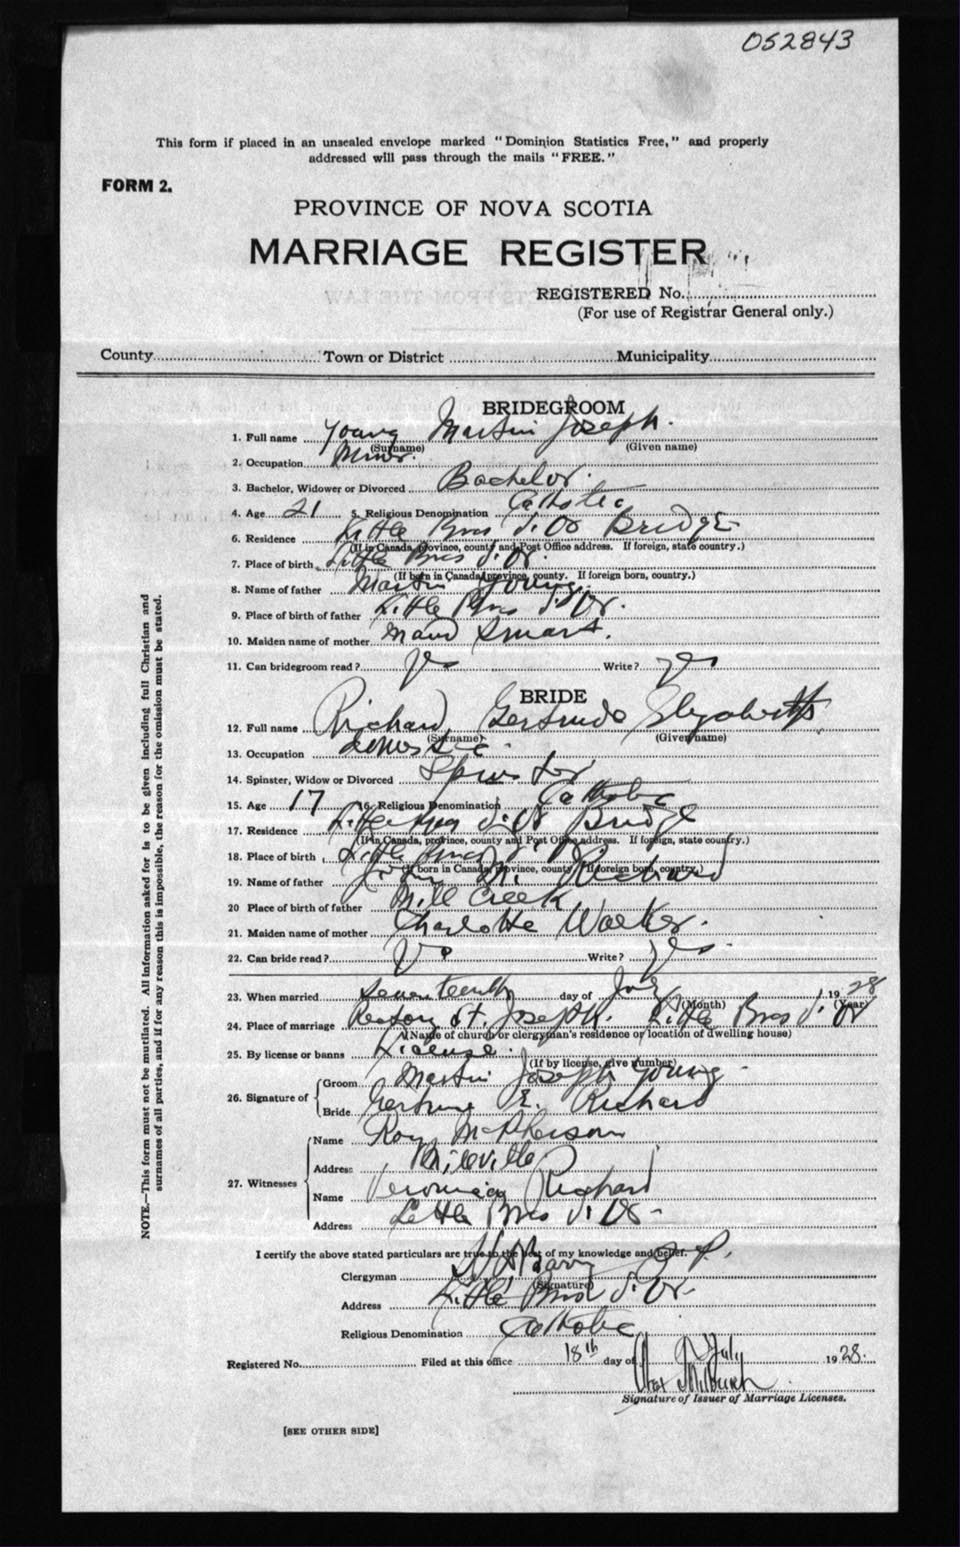 052843
This form if placed in an unsealed envelope marked "Dominion Statistics Free," and properly
addressed will pass through the mails "FREE."
FORM 2.
PROVINCE OF NOVA SCOTIA
MARRIAGE REGISTER
REGISTERED No.
(For use of Registrar General only.)
County Town or District Municipality
BRIDEGROOM
1. Full name Young Martin Joseph.
(Surname) (Given name)
2. Occupation Miner.
3. Bachelor, Widower or Divorced Bachelor.
4. Age 21 5. Religious Denomination Catholic
6. Residence Little Bras d'Or Bridge
(If in Canada, province, county and Post Office address. If foreign, state country.)
7. Place of birth Little Bras d'Or
(If born in Canada, province, county. If foreign born, country.)
8. Name of father Martin Young
9. Place of birth of father Little Bras d'Or.
10. Maiden name of mother Maud Smart.
11. Can bridegroom read? Yes Write? Yes
BRIDE
12. Full name Richard Gertrude Elizabeth
(Surname) (Given name)
13. Occupation Domestic.
14. Spinster, Widow or Divorced Spinster
15. Age 17 16. Religious Denomination Catholic
17. Residence Little Bras d'Or Bridge
(If in Canada, province, county and Post Office address. If foreign, state country.)
18. Place of birth Little Bras d'Or
(If born in Canada, province, county. If foreign born, country.)
19. Name of father John Richard
20 Place of birth of father Mill Creek
21. Maiden name of mother Charlotte Walker.
22. Can bride read? Yes Write? Yes.
23. When married Seventeenth day of July 1928
(Month) (Year)
24. Place of marriage St. Joseph. Little Bras d'Or
(Name of church or clergyman's residence or location of dwelling house)
25. By license or banns License.
(If by license, give number)
26. Signature of Groom Martin Joseph Young
Bride Gertrude E. Richard
27. Witnesses Name Roy McPherson
Address Millville
Name Veronica Richard
Address Little Bras d'Or
I certify the above stated particulars are true to the best of my knowledge and belief.
Clergyman P.P.
(Signature)
Address Little Bras d'Or
Religious Denomination Catholic
Registered No. Filed at this office 18th day of July 1928.
Signature of Issuer of Marriage Licenses.
[SEE OTHER SIDE]
NOTE.—This form must not be mutilated. All information asked for is to be given including full Christian and
surnames of all parties, and if for any reason this is impossible, the reason for the omission must be stated.